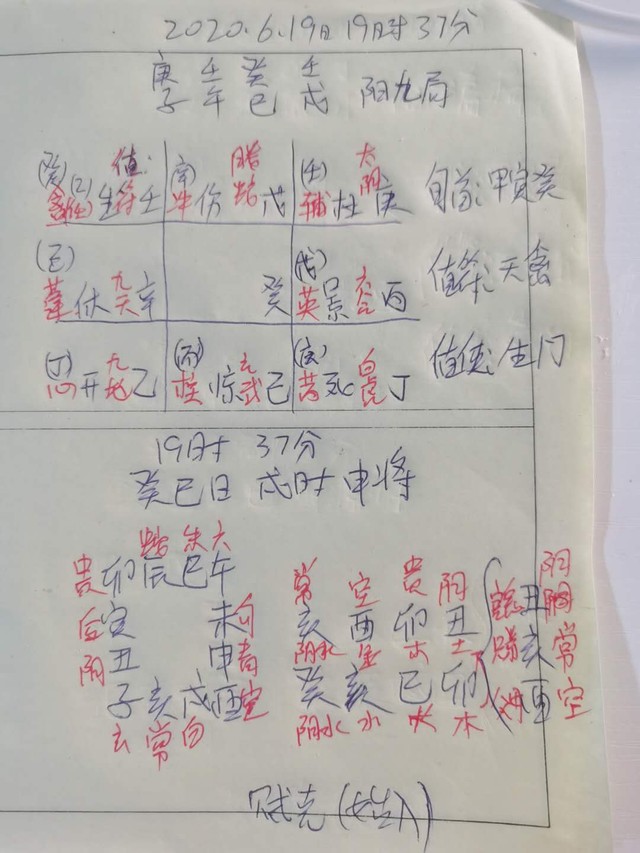 2020.6.19日19时37分
庚 壬 癸 壬
子 午 巳 戌 阳九局
(癸) 值 腾 (壬) 太
禽(任)生符壬 冲伤蛇戊 辅杜阴庚 旬首:甲寅癸
九 (戊) 六
蓬休天辛 癸 英景合丙 值符:天禽
(丁)九 (丙)玄 白
心开地乙 柱惊武己 死虎丁 值使:生门
19时37分
癸巳日 戌时 申将
蛇朱六
贵卯辰巳午 常 空 贵 阴 阴
后寅 未勾 亥 酉 卯 丑 丑
阴丑 申青 阴水 金 木 土 亥常
子亥戌酉空 癸 亥 巳 卯 酉空
玄常白 阴水 水 火 木
贼克(始入)